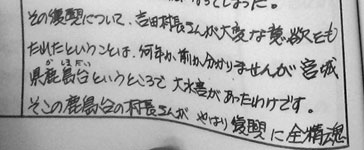 なってしまった。
その復興について、吉田村長さんが大変な意欲をも
たれたということは、何年か前か分かりませんが宮城
県鹿島台というところで大水害があったわけです。
かしまだい
そこの鹿島台の村長さんが やはり復興に全精魂